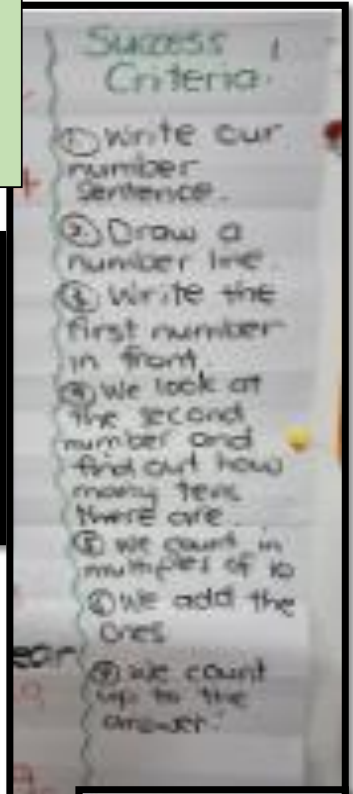 Success
Criteria.
① Write our
number
sentence.
② Draw a
number line.
③ Write the
first number
in front
④ We look at
the second
number and
find out how
many tens
there are.
⑤ We count in
multiples of 10
⑥ We add the
ones
⑦ We count
up to the
answer.